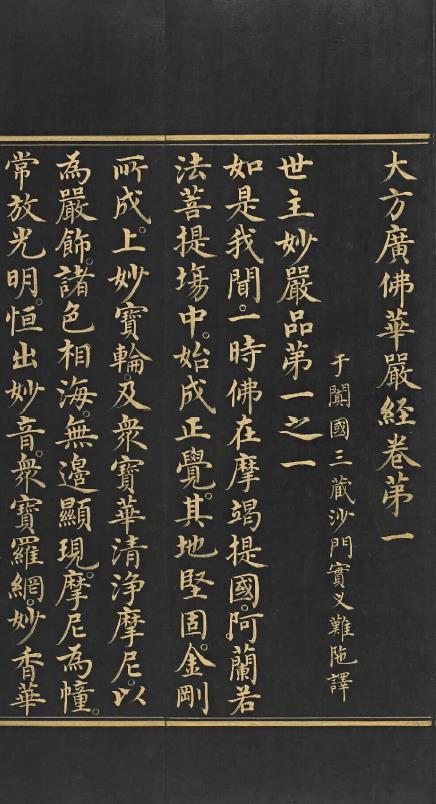 大方廣佛華嚴經卷苐一
于闐國三藏沙門實叉難陁譯
世主妙嚴品苐一之一
如是我聞。一時佛在摩竭提國。阿蘭若
法菩提場中。始成正覺。其地堅固。金剛
所成。上妙寶輪。及衆寶華清淨摩尼。以
為嚴飾。諸色相海。無邊顯現。摩尼為幢。
常放光明。恒出妙音。衆寶羅網。妙香華